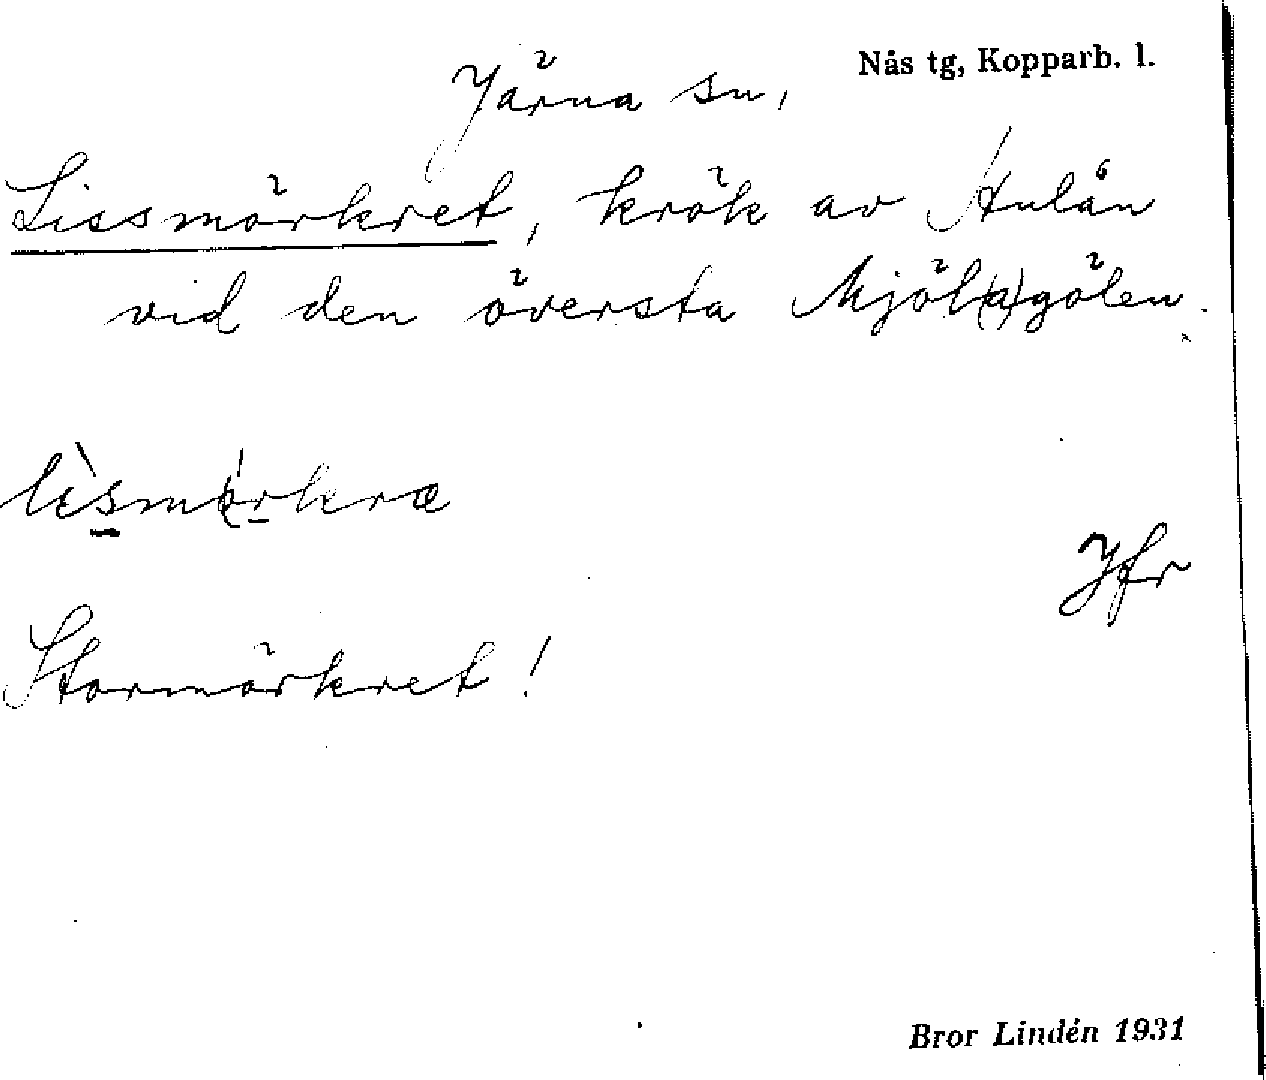 Nås tg, Kopparb. l.
Järna sn,
Lissmörkret, krök av Hulån
vid den översta Mjöl(a)gölen.
Jfr
Stormörkret!
Bror Lindén 1931